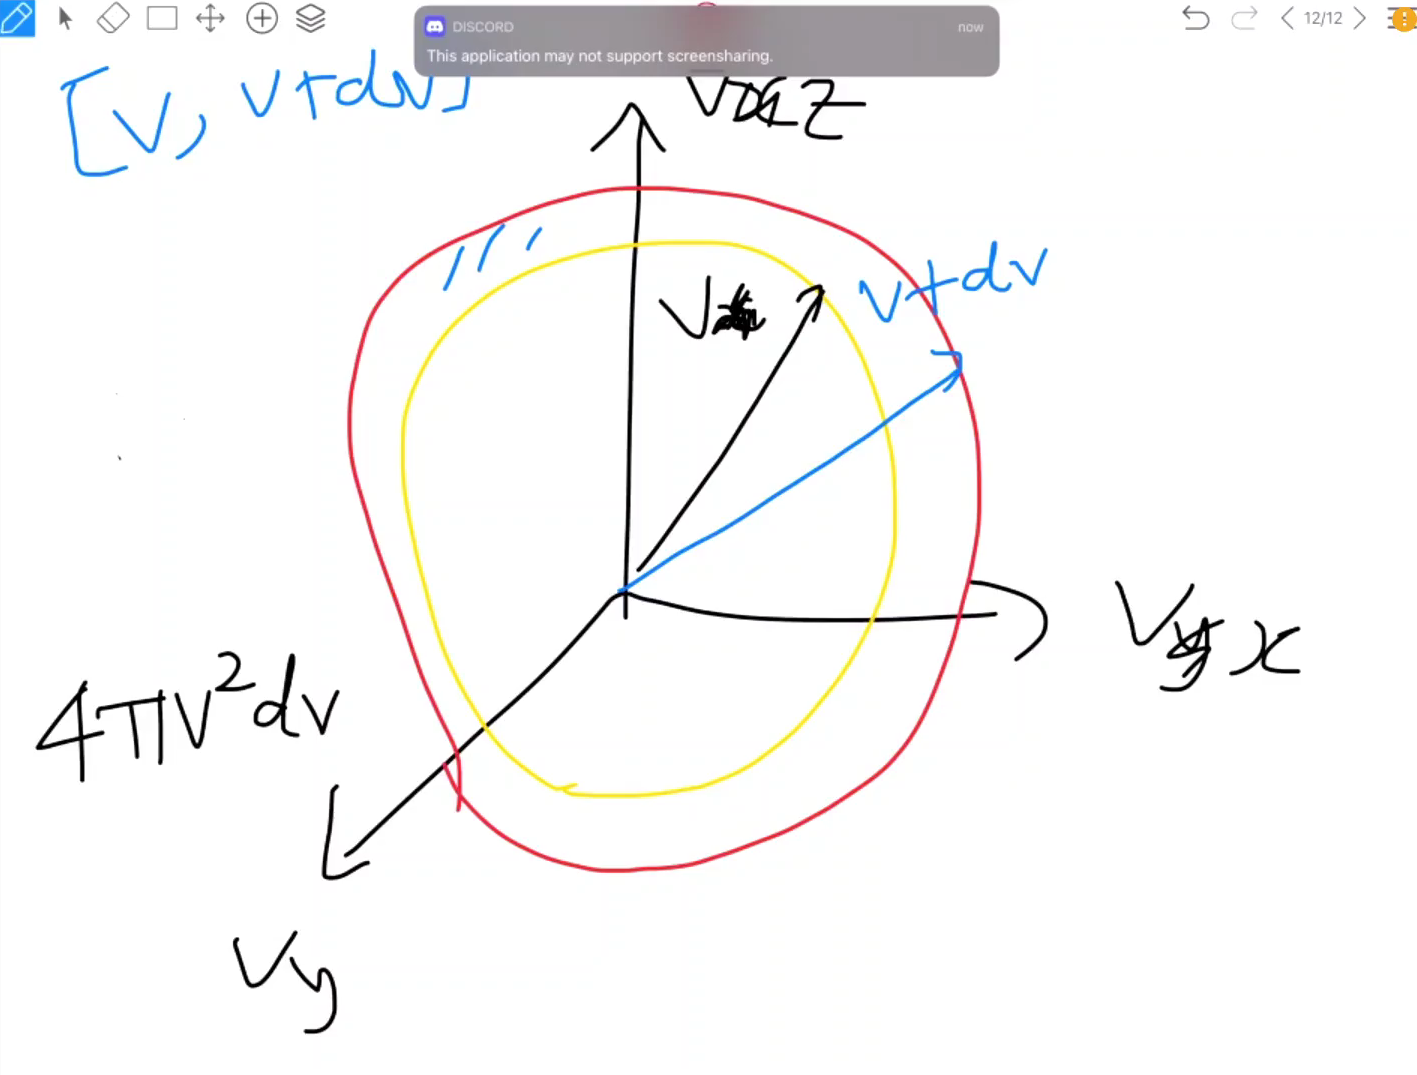 12/12
DISCORD now
This application may not support screensharing.
[v, v+dv]
Vz
V
v+dv
Vx
4πv²dv
Vy